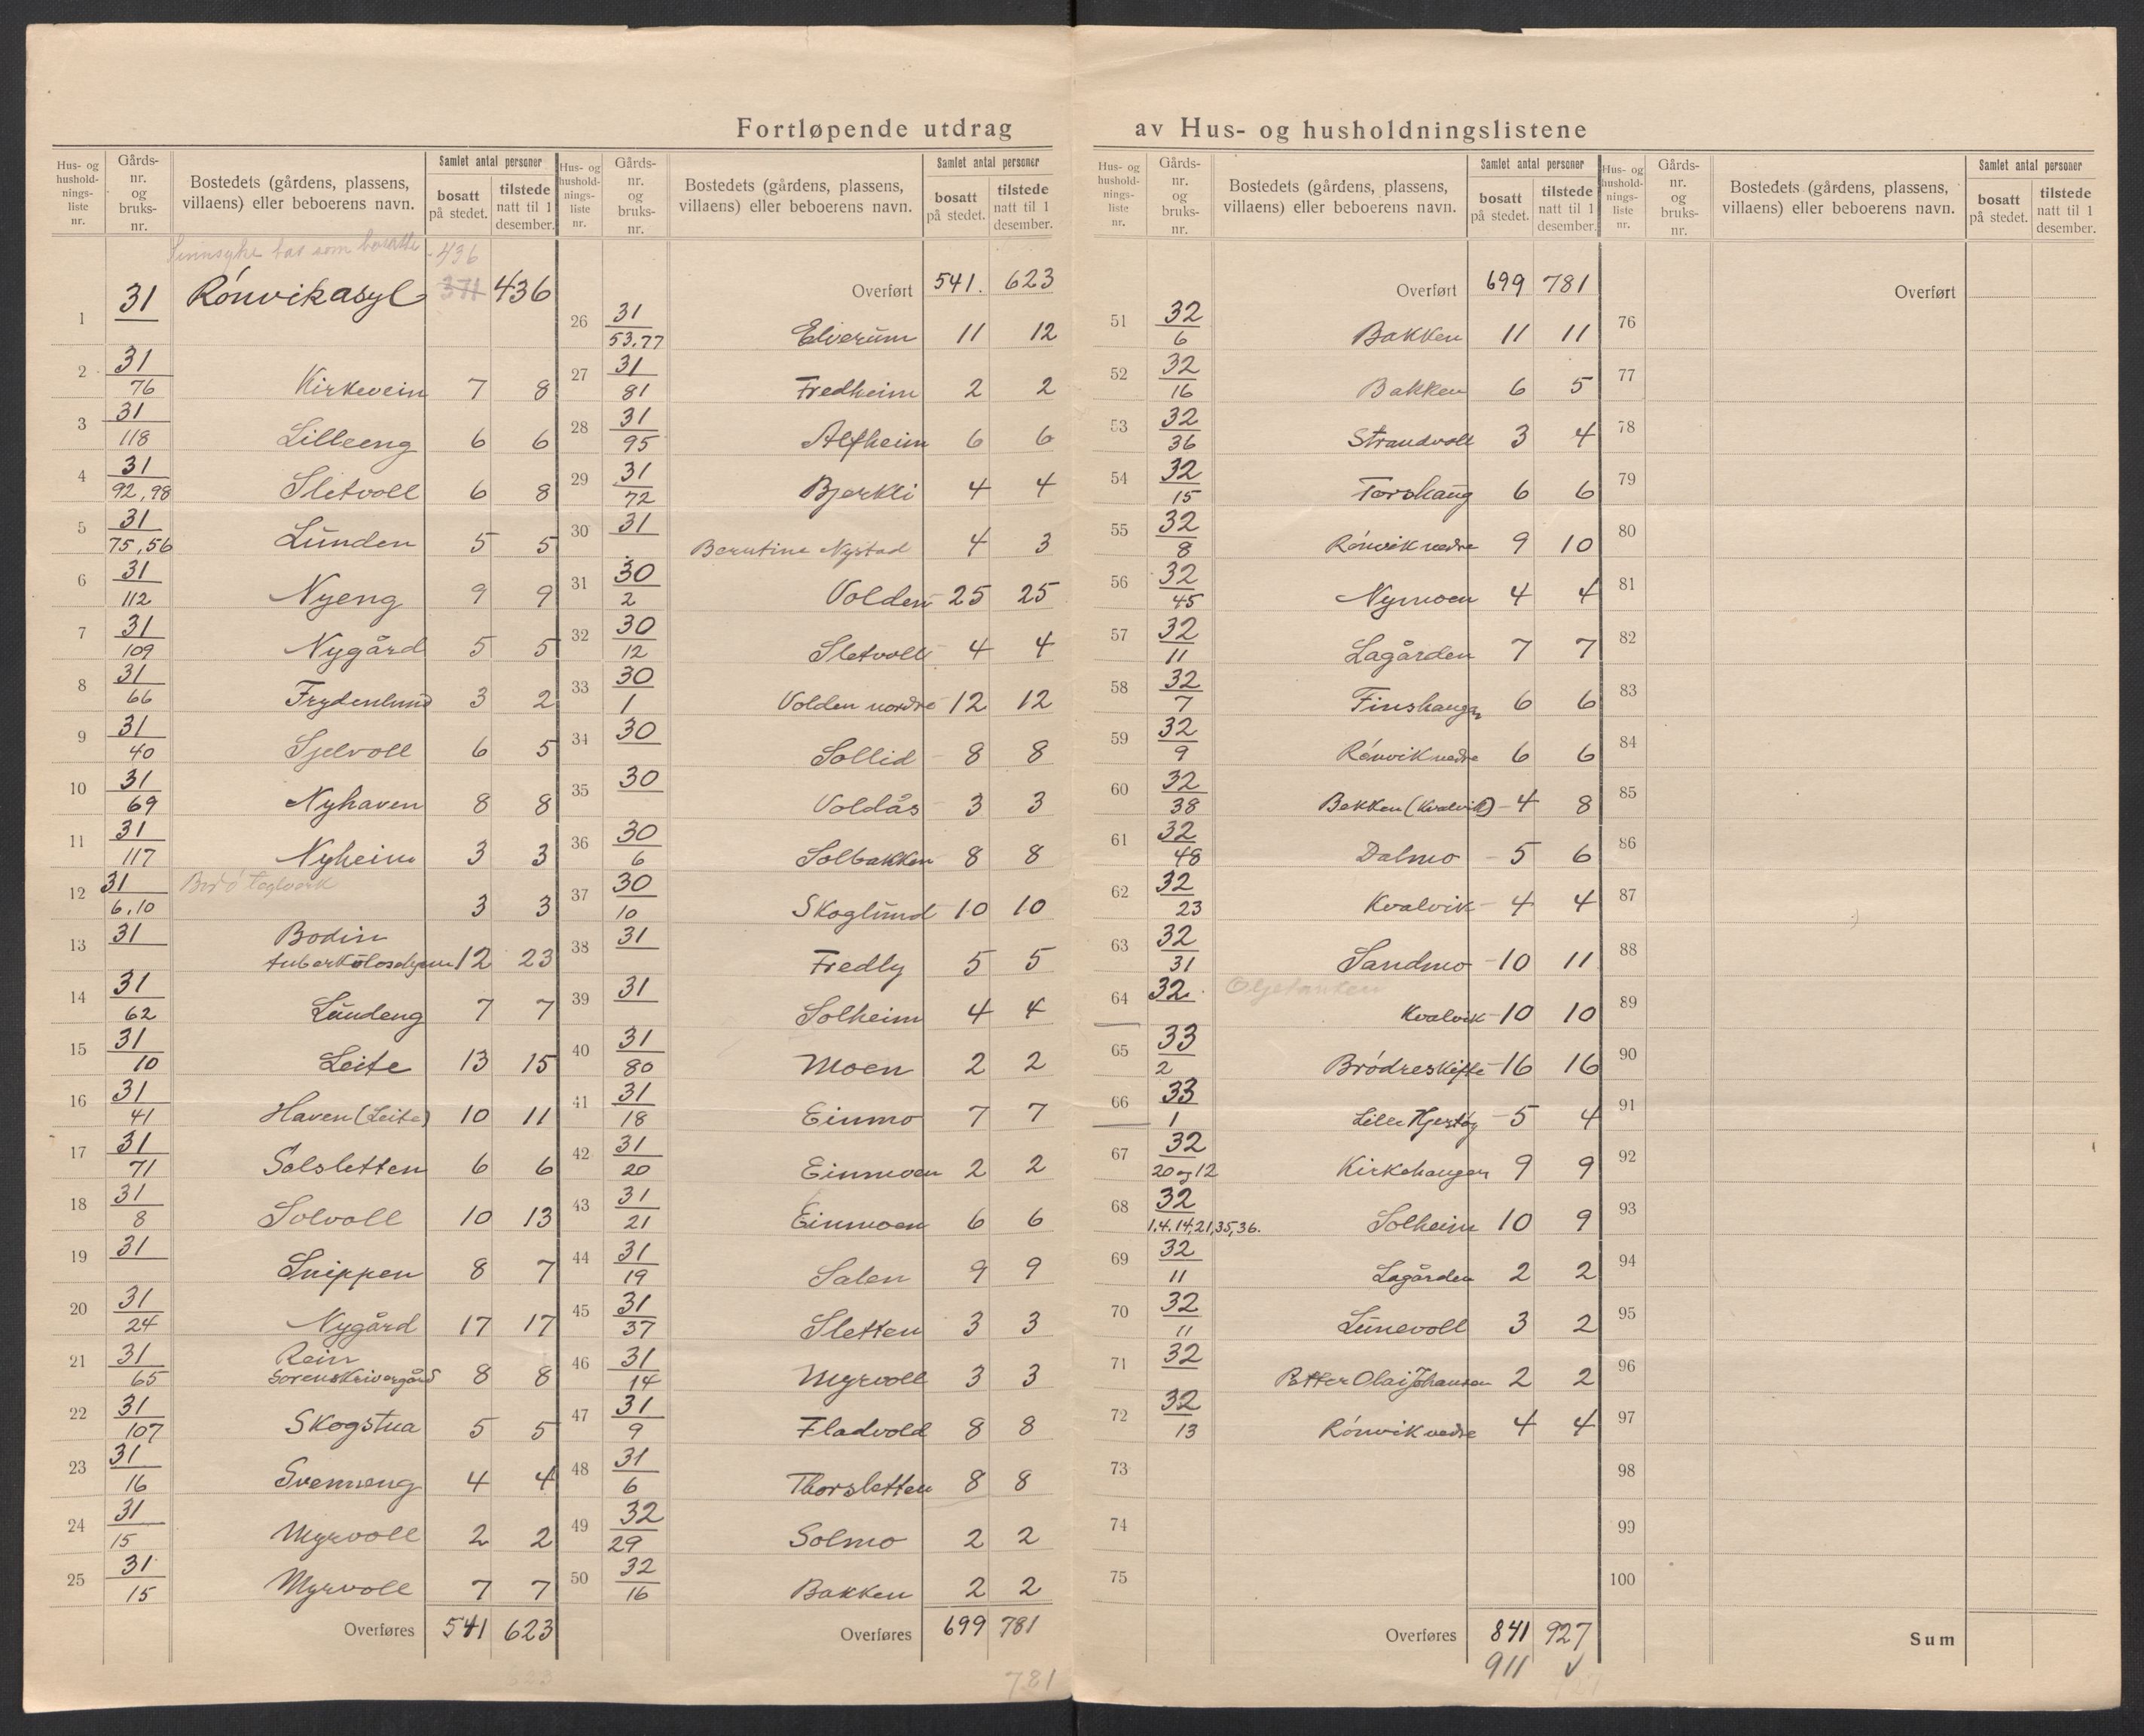 Fortløpende utdrag av Hus- og husholdningslistene
Hus- og hushold-nings-liste nr. | Gårds-nr. og bruks-nr. | Bostedets (gårdens, plassens, villaens) eller beboerens navn. | Samlet antal personer | bosatt på stedet. | tilstede natt til 1 desember.
Sinnsyke som bosatte 436
1 31 Rönvik asyl 371 436
2 31/76 Kirkevein 7 8
3 31/118 Lilleeng 6 6
4 31/92,98 Sletvoll 6 8
5 31/75,56 Lunden 5 5
6 31/112 Nyeng 9 9
7 31/109 Nygård 5 5
8 31/66 Frydenlund 3 2
9 31/40 Sjelvoll 6 5
10 31/69 Nyhaven 8 8
11 31/117 Nyheim 3 3
12 31/6,10 Bodö teglverk 3 3
13 31 Bodin tuberkulosehjem 12 23
14 31/62 Lundeng 7 7
15 31/10 Leite 13 15
16 31/41 Haven (Leite) 10 11
17 31/71 Solsletten 6 6
18 31/8 Solvoll 10 13
19 31 Snippen 8 7
20 31/24 Nygård 17 17
21 31/65 Rein Sorenskrivergård 8 8
22 31/107 Skogstua 5 5
23 31/16 Svenneng 4 4
24 31/15 Myrvoll 2 2
25 31/15 Myrvoll 7 7
Overføres 541 623
623
Hus- og hushold-nings-liste nr. | Gårds-nr. og bruks-nr. | Bostedets (gårdens, plassens, villaens) eller beboerens navn. | Samlet antal personer | bosatt på stedet. | tilstede natt til 1 desember.
Overført 541. 623
26 31/53.77 Elverum 11 12
27 31/81 Fredheim 2 2
28 31/95 Alfheim 6 6
29 31/72 Bjerkli 4 4
30 31 Berntine Nystad 4 3
31 30/2 Volden 25 25
32 30/12 Sletvoll 4 4
33 30/1 Volden nordre 12 12
34 30 Sollid 8 8
35 30 Voldås 3 3
36 30/6 Solbakken 8 8
37 30/10 Skoglund 10 10
38 31 Fredly 5 5
39 31 Solheim 4 4
40 31/80 Moen 2 2
41 31/18 Einmo 7 7
42 31/20 Einmoen 2 2
43 31/21 Einmoen 6 6
44 31/19 Salen 9 9
45 31/37 Sletten 3 3
46 31/14 Myrvoll 3 3
47 31/9 Fladvold 8 8
48 31/6 Thorsletten 8 8
49 32/29 Solmo 2 2
50 32/16 Bakken 2 2
Overføres 699 781
781
Hus- og hushold-nings-liste nr. | Gårds-nr. og bruks-nr. | Bostedets (gårdens, plassens, villaens) eller beboerens navn. | Samlet antal personer | bosatt på stedet. | tilstede natt til 1 desember.
Overført 699 781
51 32/6 Bakken 11 11
52 32/16 Bakken 6 5
53 32/36 Strandvoll 3 4
54 32/15 Torshaug 6 6
55 32/8 Rönvik nedre 9 10
56 32/45 Nymoen 4 4
57 32/11 Lagården 7 7
58 32/7 Finshaugen 6 6
59 32/9 Rönvik nedre 6 6
60 32/38 Bekken (Kvalvik) 4 8
61 32/48 Dalmo 5 6
62 32/23 Kvalvik 4 4
63 32/31 Sandmo 10 11
64 32 Oljetanken Kvalvik 10 10
65 33/2 Brödreskifte 16 16
66 33/1 Lille Hjertöy 5 4
67 32/20 og 12 Kirkehaugen 9 9
68 32/1.4.14,21,35,36. Solheim 10 9
69 32/11 Lagården 2 2
70 32/11 Lunevoll 3 2
71 32 Petter Olai Johansen 2 2
72 32/13 Rönvik nedre 4 4
73
74
75
Overføres 841 927
911 ✓
Hus- og hushold-nings-liste nr. | Gårds-nr. og bruks-nr. | Bostedets (gårdens, plassens, villaens) eller beboerens navn. | Samlet antal personer | bosatt på stedet. | tilstede natt til 1 desember.
Overført
76
77
78
79
80
81
82
83
84
85
86
87
88
89
90
91
92
93
94
95
96
97
98
99
100
Sum